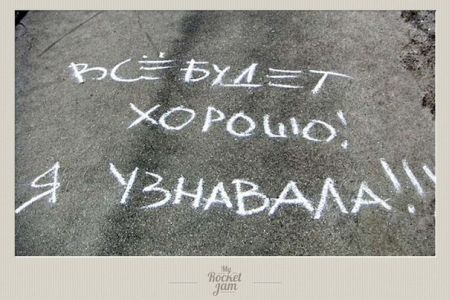 ВСЁ БУДЕТ
ХОРОШО!
Я УЗНАВАЛА!!!
My
Rocket
Jam